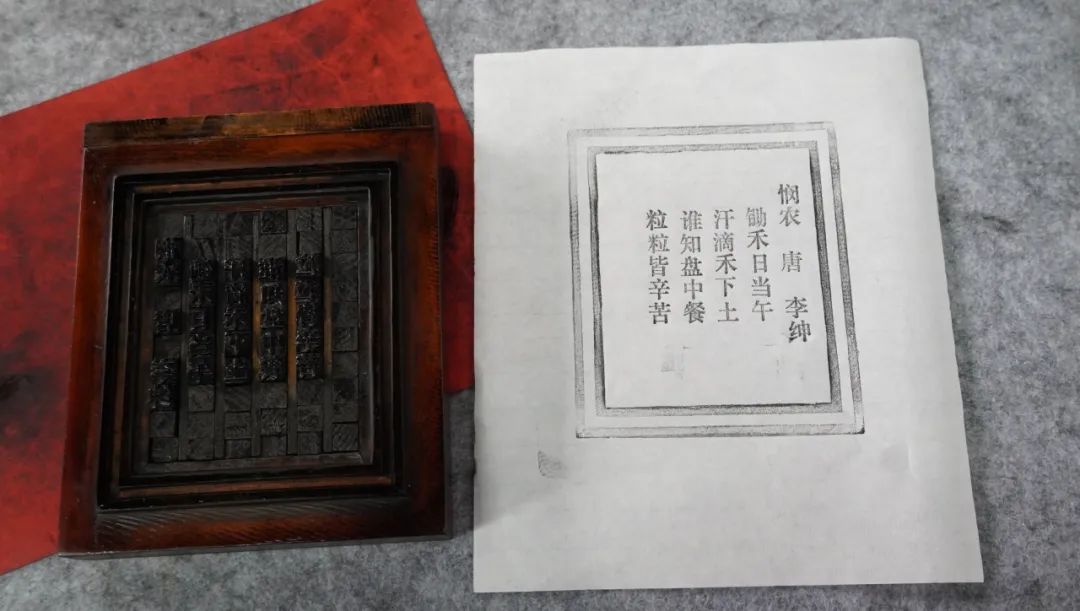 悯农 唐 李绅
锄禾日当午
汗滴禾下土
谁知盘中餐
粒粒皆辛苦